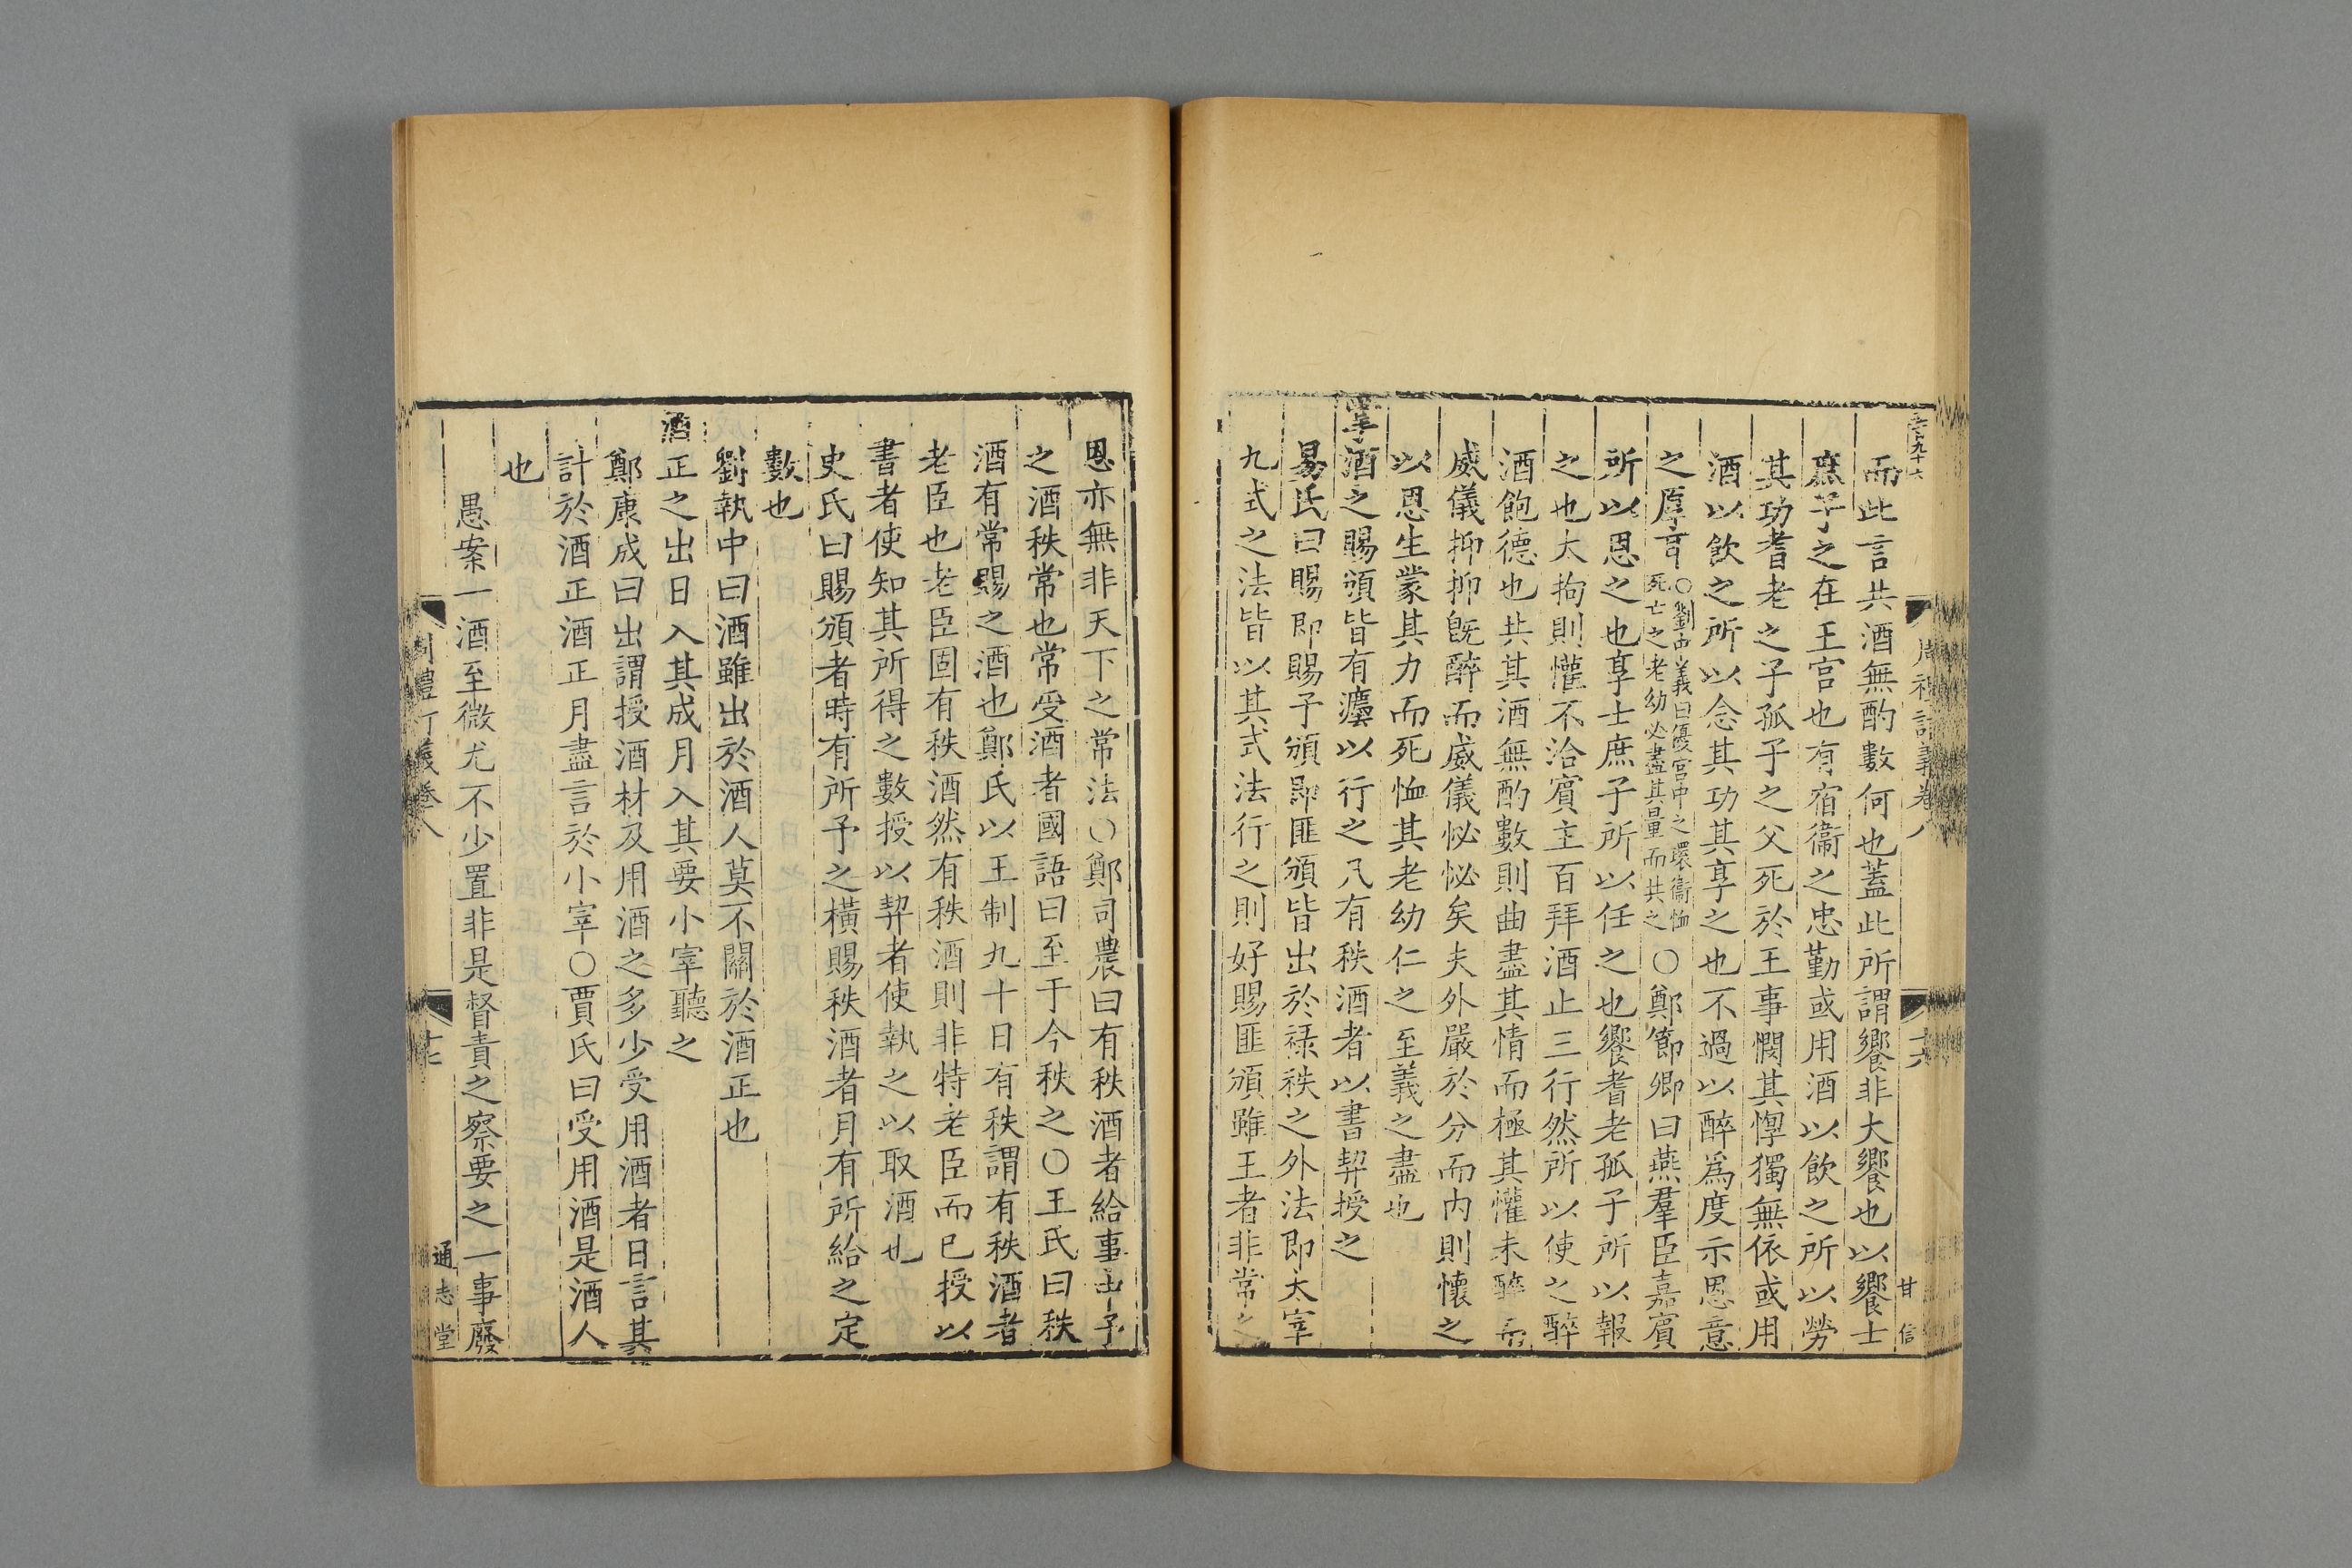 而此言共酒無酌數何也蓋此所謂饗非大饗也以饗士
庶子之在王宫也有宿衞之忠勤或用酒以飲之所以勞
其功耆老之子孤子之父死於王事憫其惸獨無依或用
酒以飲之所以念其功其享之也不過以醉爲度示恩意
之厚言
○劉中義曰優宫中之環衞恤
死亡之老幼必盡其量而共之
○鄭節卿曰燕羣臣嘉賓
所以恩之也享士庶子所以任之也饗耆老孤子所以報
之也大拘則懽不洽賓主百拜酒止三行然所以使之醉
酒飽德也共其酒無酌數則曲盡其情而極其懽未醉而
威儀抑抑旣醉而威儀怭怭矣夫外嚴於分而内則懷之
以恩生蒙其力而死恤其老幼仁之至義之盡也
掌酒之賜頒皆有灋以行之凡有秩酒者以書契授之
易氏曰賜即賜予頒即匪頒皆出於祿秩之外法即太宰
九式之法皆以其式法行之則好賜匪頒雖王者非常之
周禮訂義卷八
十六
甘 信
恩亦無非天下之常法○鄭司農曰有秩酒者給事中予
之酒秩常也常受酒者國語曰至于今秩之○王氏曰秩
酒有常賜之酒也鄭氏以王制九十日有秩謂有秩酒者
老臣也老臣固有秩酒然有秩酒則非特老臣而已授以
書者使知其所得之數授以契者使執之以取酒也
史氏曰賜頒者時有所予之橫賜秩酒者月有所給之定
數也
劉執中曰酒雖出於酒人莫不關於酒正也
酒正之出日入其成月入其要小宰聽之
鄭康成曰出謂授酒材及用酒之多少受用酒者日言其
計於酒正酒正月盡言於小宰○賈氏曰受用酒是酒人
也
愚案一酒至微尤不少置非是督責之察要之一事廢
周禮訂義卷八
十七
通志堂